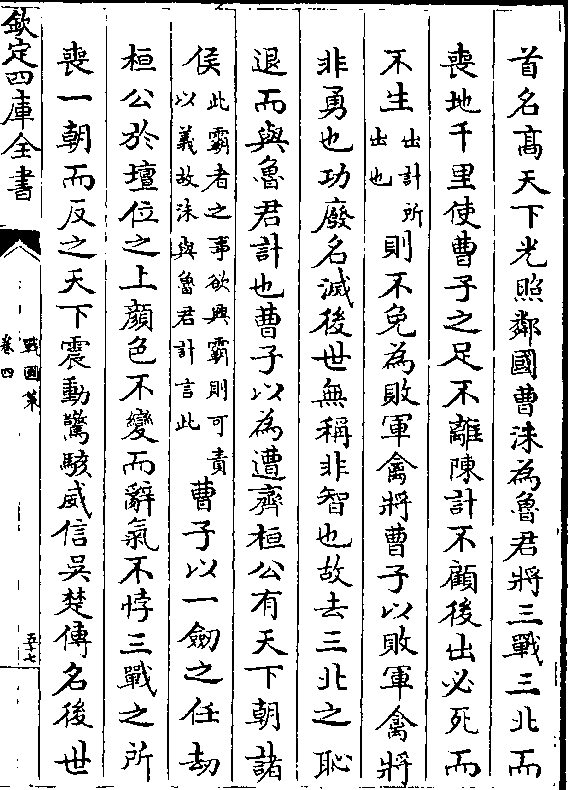 首名髙天下光照鄰國曹沬為魯君將三戰三北而
喪地千里使曹子之足不離陳計不顧後出必死而
不生出計所出也則不免為敗軍禽將曹子以敗軍禽將
非勇也功廢名滅後世無稱非智也故去三北之恥
退而與魯君計也曹子以為遭齊桓公有天下朝諸
侯此霸者之事欲興霸則可責以義故沬與魯君計言此曹子以一劒之任劫
桓公於壇位之上顔色不變而辭氣不悖三戰之所
喪一朝而反之天下震動驚駭威信吳楚傳名後世
欽定四庫全書
戰國策
卷四
五十七